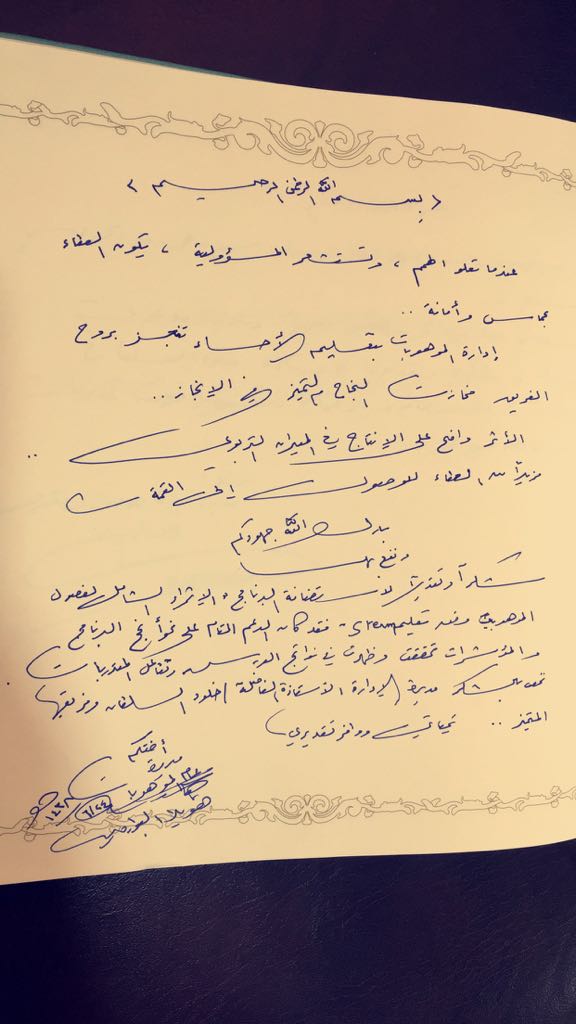 < بسم الله الرحمن الرحيم >
عندما تعلو الهمم ، وتستشعر المسؤولية ، يكون العطاء
بحماس وأمانة ..
إدارة الموهوبات بتعليم الأحساء تعمل بروح
الفريق فحازت النجاح والتميز في الإنجاز ..
الأثر واضح على الإنتاج في الميدان التربوي ..
مزيدًا من العطاء للوصول إلى القمة
بارك الله جهودكم
ونفع بها
شكرًا وتقديرًا لاستضافة البرنامج الإثراء الشامل لفصول
الموهوبين وفق تعليم Stream فقد كان الدعم التام على نجاح البرنامج
والمؤشرات تحققت وظهرت في نواتج التدريب وتفاعل المتدربات .
الشكر مديرة الإدارة الأستاذة الفاضلة / خلود السلطان وفريقها
المتميز .. تحياتي ووافر تقديري
أختكم
مديرة
الموهوبات
١٤٣٨